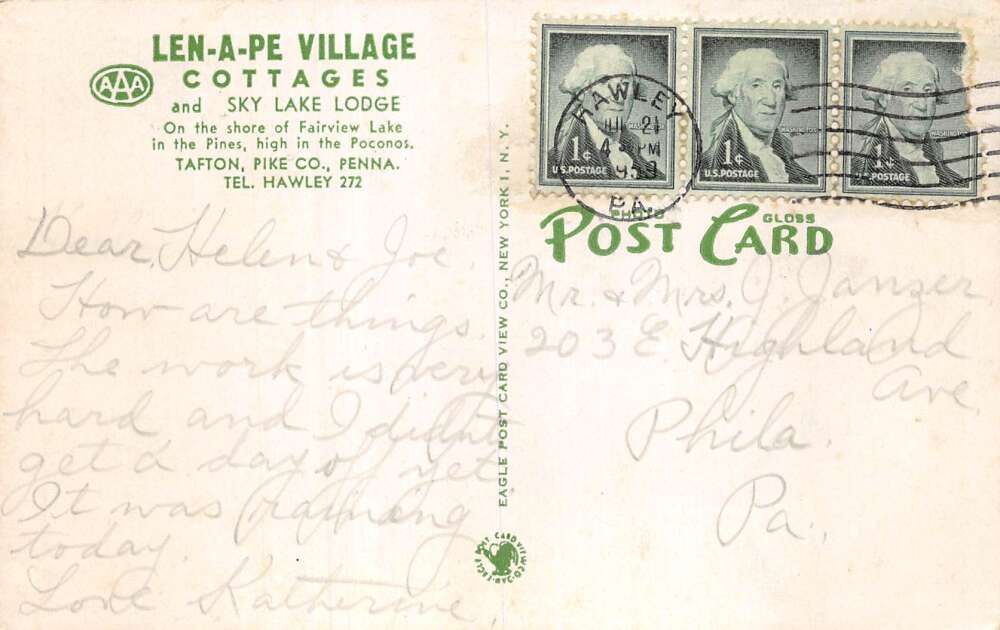 LEN-A-PE VILLAGE
COTTAGES
AAA
and SKY LAKE LODGE
On the shore of Fairview Lake
in the Pines, high in the Poconos.
TAFTON, PIKE CO., PENNA.
TEL. HAWLEY 272
Dear, Helen & Joe.
How are things.
The work is very
hard and I didn't
get a day off yet
It was raining
today.
Love Katherine
EAGLE POST CARD VIEW CO., NEW YORK 1, N. Y.
EAGLE POST CARD VIEW CO.
WASHINGTON
1¢
U.S. POSTAGE
WASHINGTON
1¢
U.S. POSTAGE
WASHINGTON
1¢
U.S. POSTAGE
HAWLEY
JUL 21
PM
PA.
PHOTO GLOSS
POST CARD
Mr. & Mrs. J. Janzer
203 E. Highland
Ave.
Phila.
Pa.